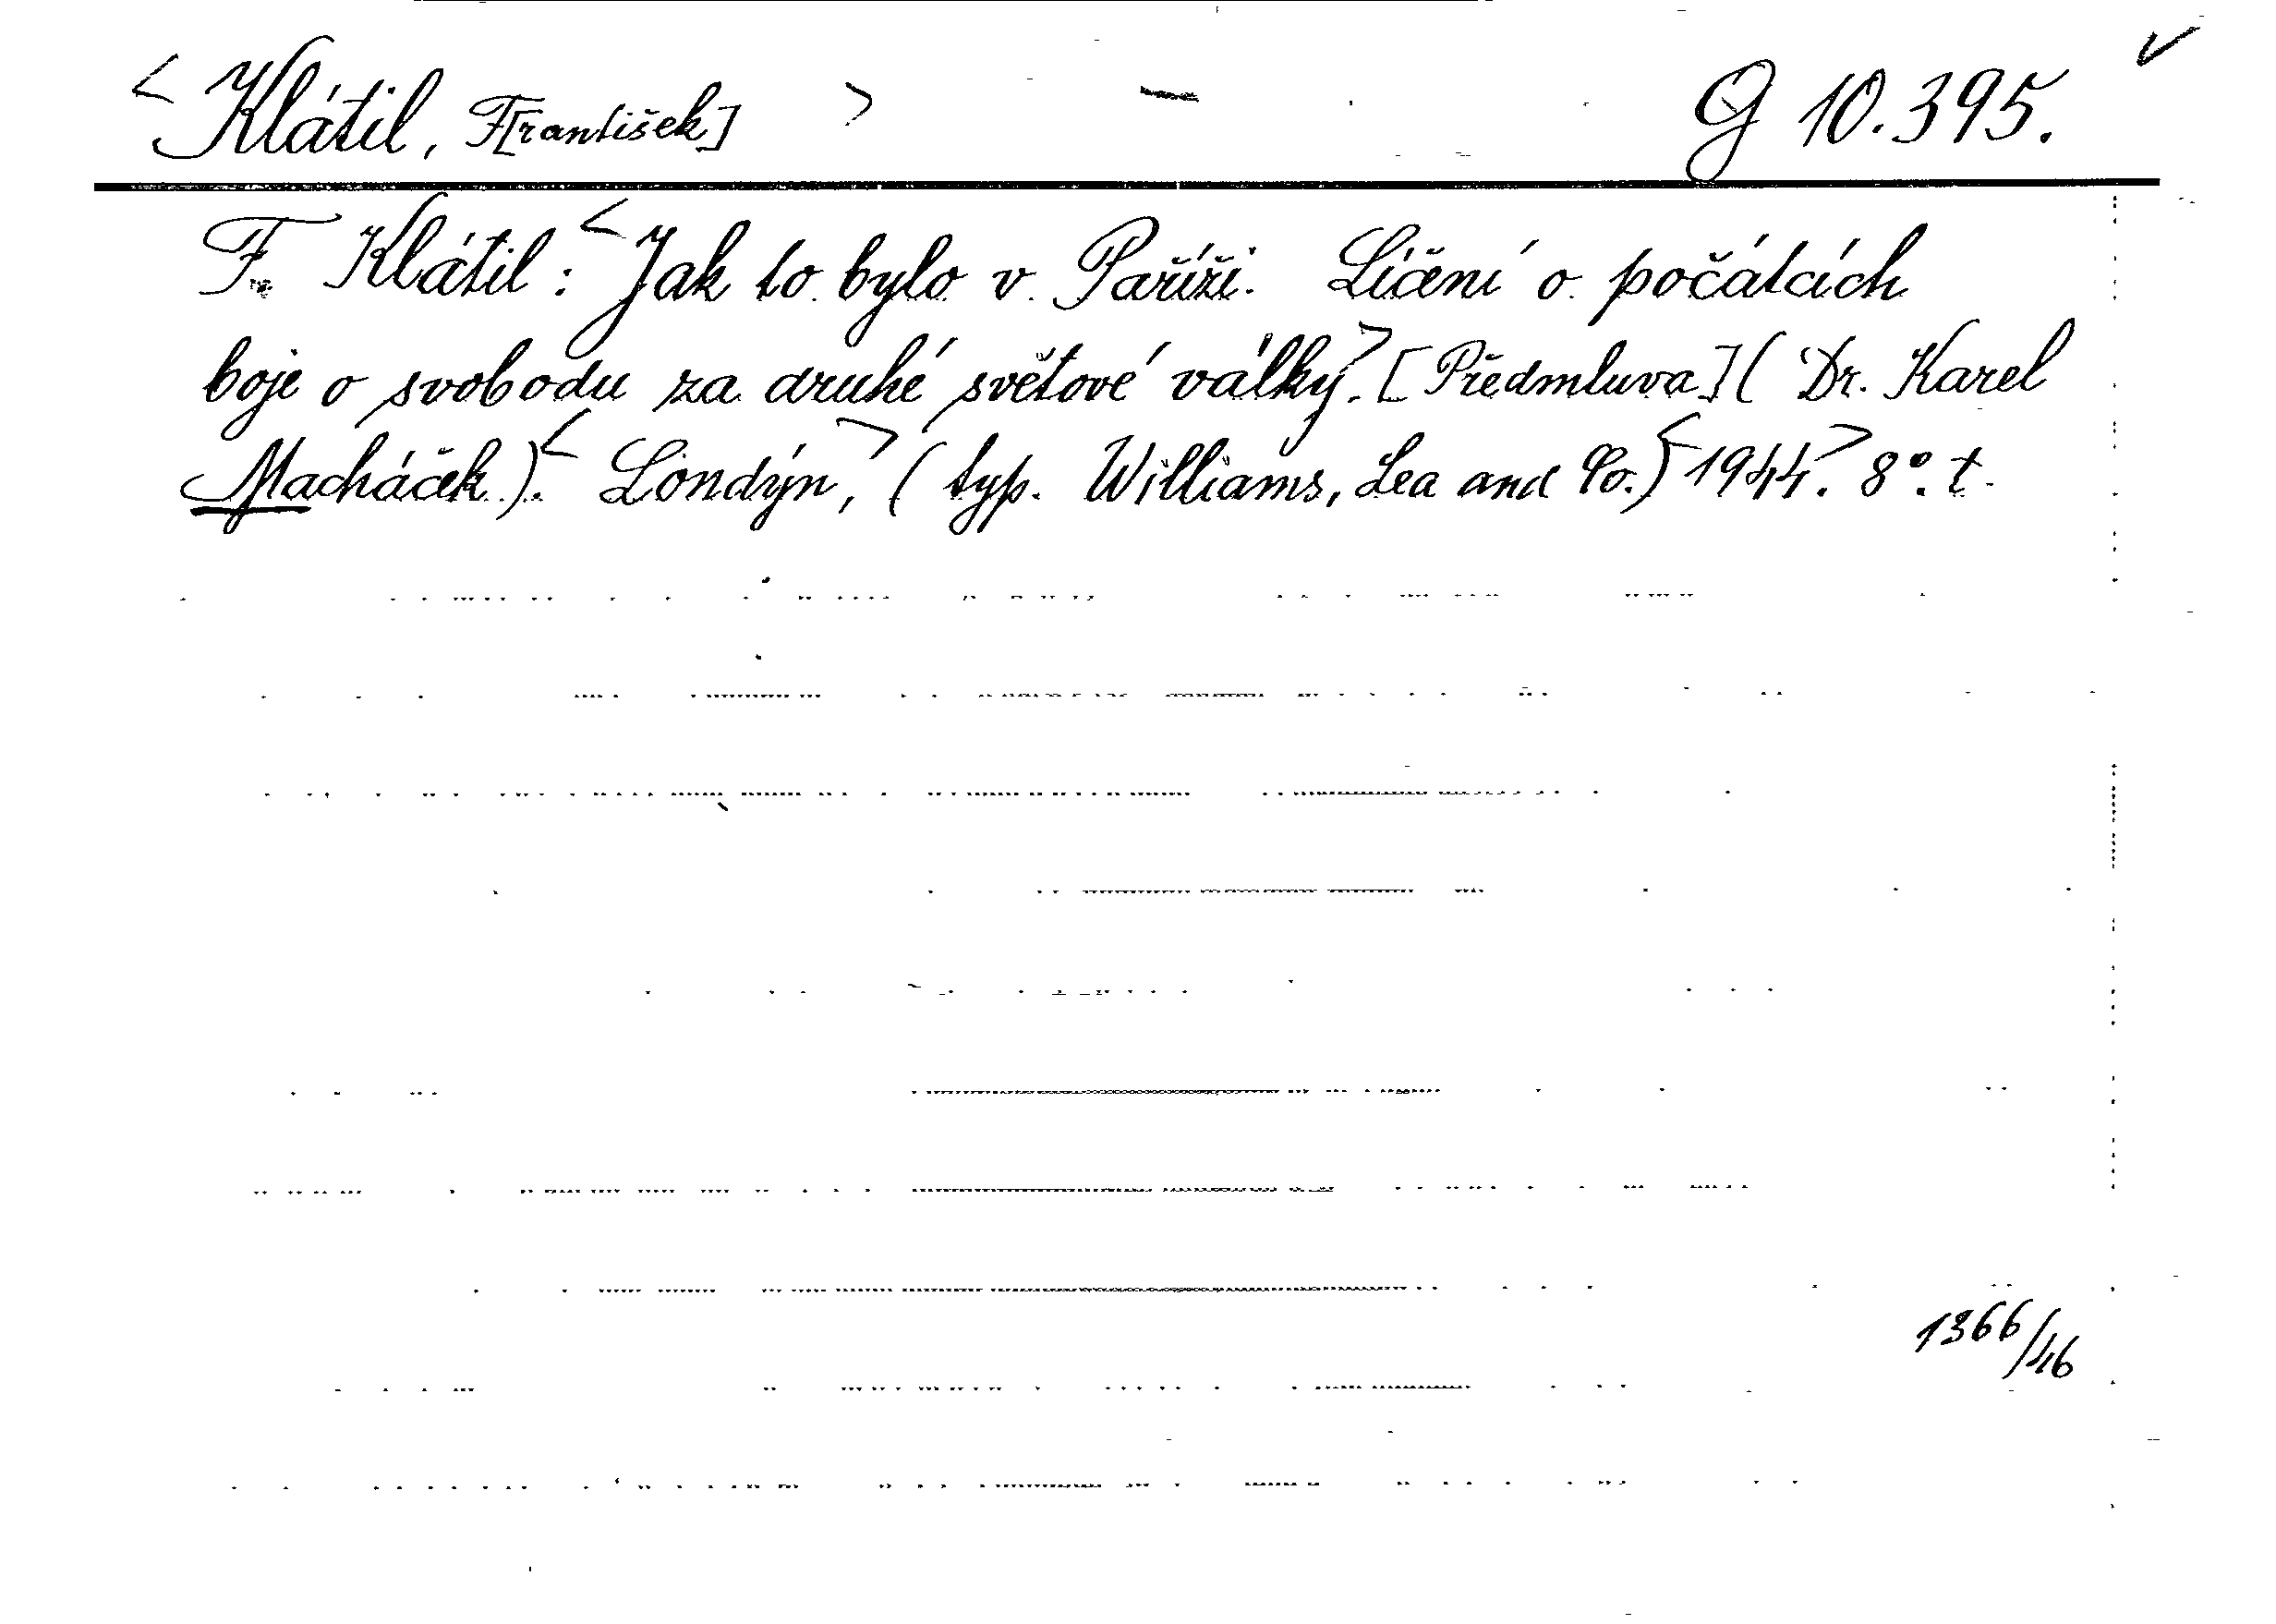 < Klátil, F[rantišek] > — G 10.395. ✓
F. Klátil: < Jak to bylo v Paříži. Líčení o počátcích
boje o svobodu za druhé světové války. > [Předmluva] (Dr. Karel
Macháček). < Londýn, > (typ. Williams, Lea and Co.) < 1944. > 8°. t.
1366/46